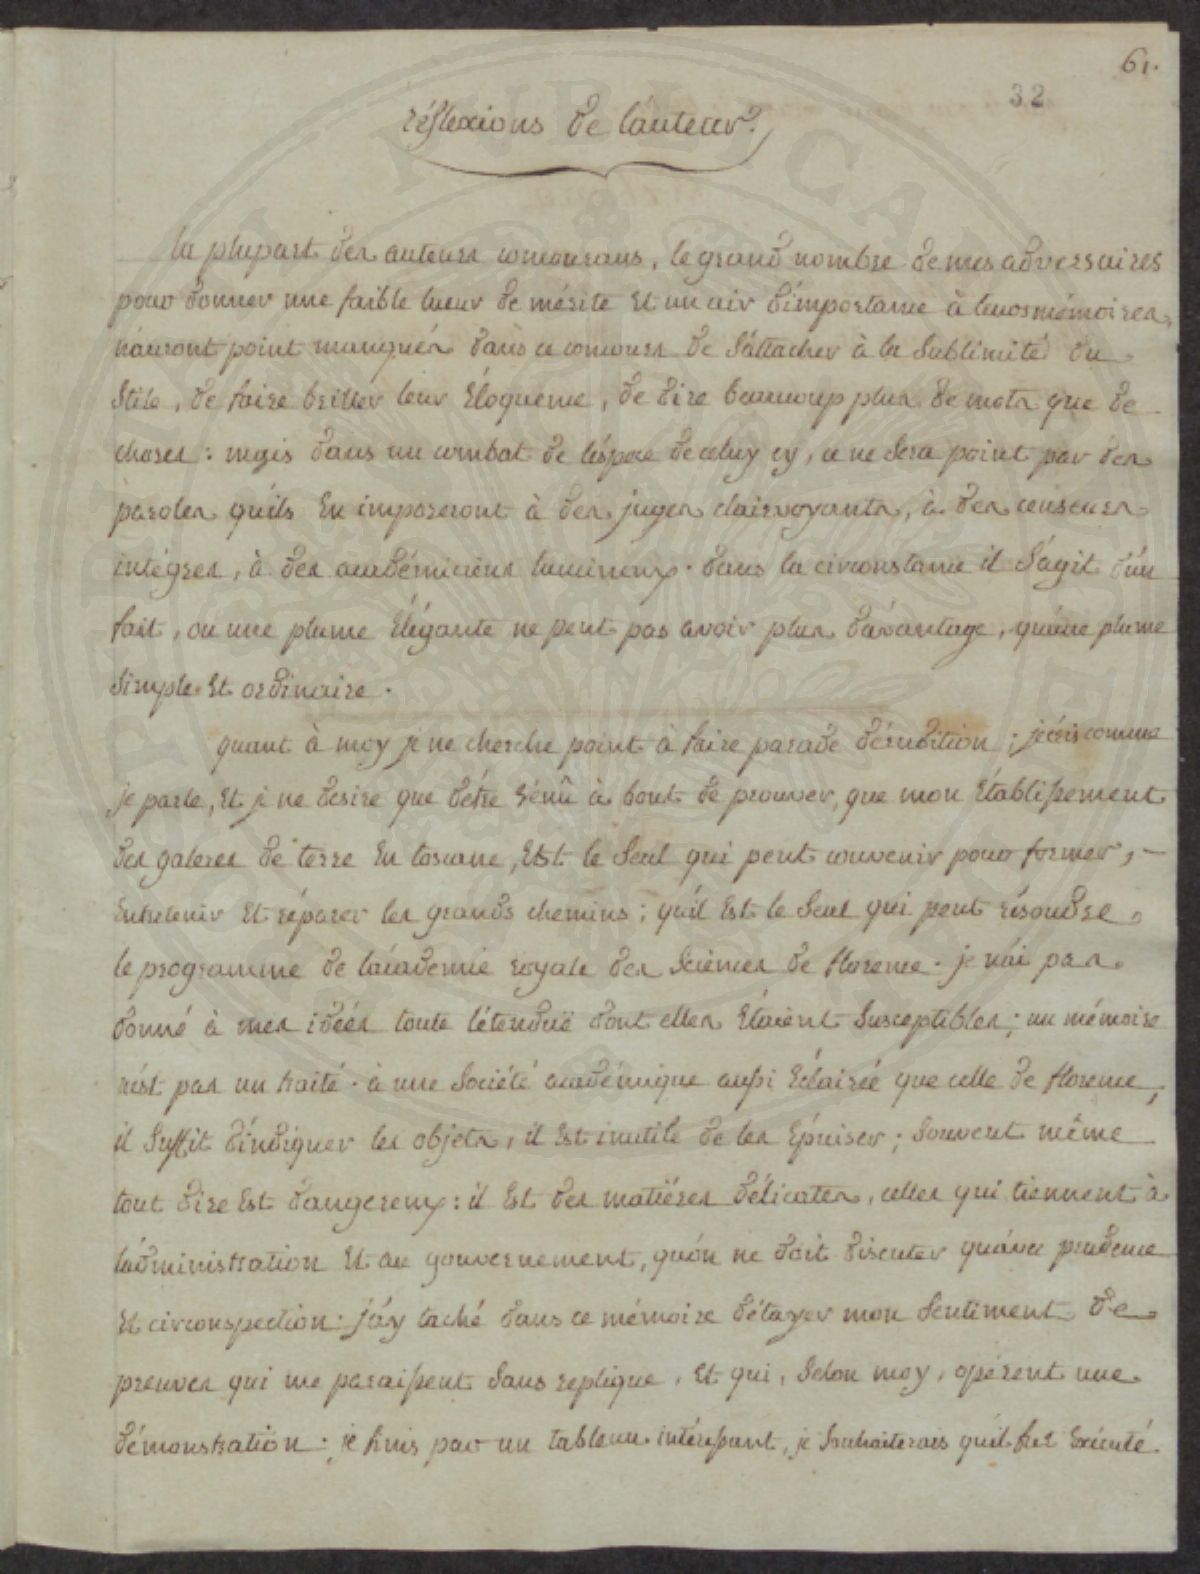 61.
32
réflexions de l'auteur.
la plupart des auteurs concourans, le grand nombre de mes adversaires
pour donner une faible lueur de mérite et un air d'importance à leurs mémoires,
n'auront point manqués dans ce concours de s'attacher à la sublimité du
stile, de faire briller leur éloquence, de dire beaucoup plus de mots que de
choses : mais dans un combat de l'éspece de celuy cy, ce ne sera point par des
paroles qu'ils en imposeront à des juges clairvoyants, à des censeurs
intégres, à des académiciens lumineux. dans la circonstance il s'agit d'un
fait, ou une plume élégante ne peut pas avoir plus d'avantage, qu'une plume
simple et ordinaire.
quant à moy je ne cherche point à faire parade d'érudition ; j'écris comme
je parle, et je ne desire que d'être vénû à bout de prouver, que mon établissement
des galeres de terre en toscane, est le seul qui peut convenir pour former,
entretenir et réparer les grands chemins ; qu'il est le seul qui peut résoudre
le programme de l'académie royale des sciences de florence. je n'ai pas
donné à mes idées toute l'étenduë dont elles étaient susceptibles ; un mémoire
n'est pas un traité. à une société académique aussi éclairée que celle de florence,
il suffit d'indiquer les objets, il est inutile de les épuiser ; souvent même
tout dire est dangereux : il est des matiéres délicates, celles qui tiennent à
l'administration et au gouvernement, qu'on ne doit discuter qu'avec prudence
et circonspection. j'ay taché dans ce mémoire d'étayer mon sentiment de
preuves qui me paraissent sans replique, et qui, selon moy, opérent une
démonstration : je finis par un tableau intéressant, je souhaiterais qu'il fut exécuté